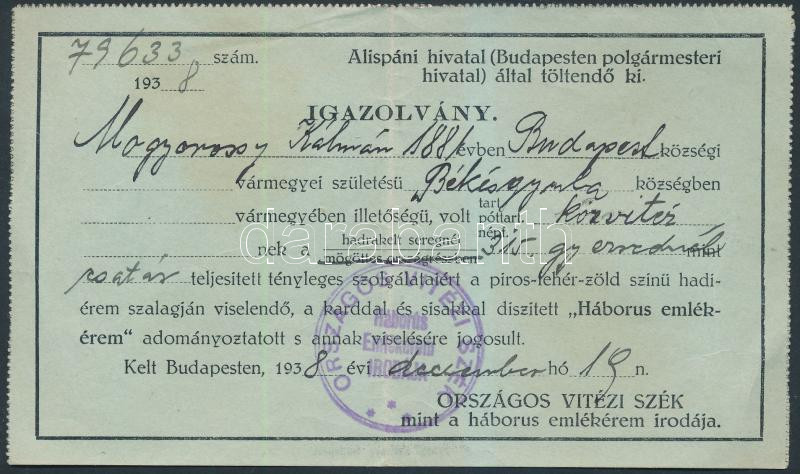 79633 szám.
Alispáni hivatal (Budapesten polgármesteri
1938
hivatal) által töltendő ki.
IGAZOLVÁNY.
Mogyorossy Kálmán 1881 évben Budapest községi
vármegyei születésű Békésgyula községben
vármegyében illetőségü, volt tart. póttart. népf. közvitéz
nek a hadrakelt seregné, 315. gy ezrednél mint
mögöttes országrészben
teljesitett tényleges szolgálataiért a piros-fehér-zöld szinü hadi-
érem szalagján viselendő, a karddal és sisakkal diszitett „Háborus emlék-
érem“ adományoztatott s annak viselésére jogosult.
Kelt Budapesten, 1938 évi december hó 19 n.
ORSZÁGOS VITÉZI SZÉK
mint a háborus emlékérem irodája.
ORSZÁGOS VITÉZI SZÉK
Háborús
Emlékérem
IRODÁJA
darabanth